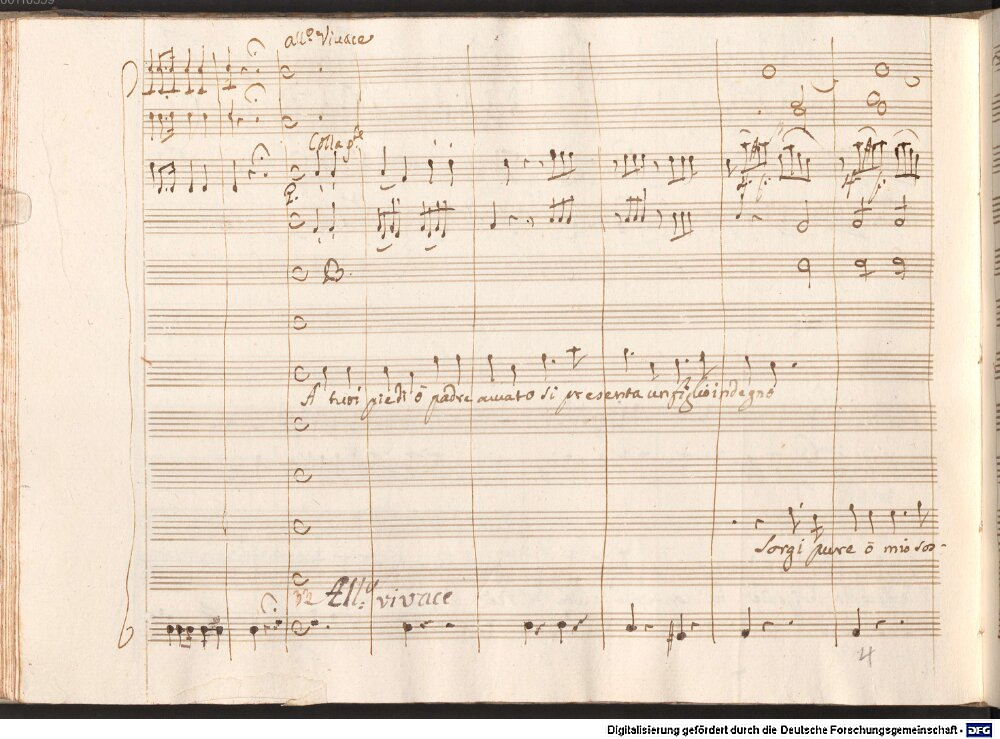 all.º Vivace
Colla p.te
A tuoi piedi ò padre amato si presenta un figlio indegno
Sorgi pure ò mio sos-
32 All.º vivace
4
Digitalisierung gefördert durch die Deutsche Forschungsgemeinschaft - DFG